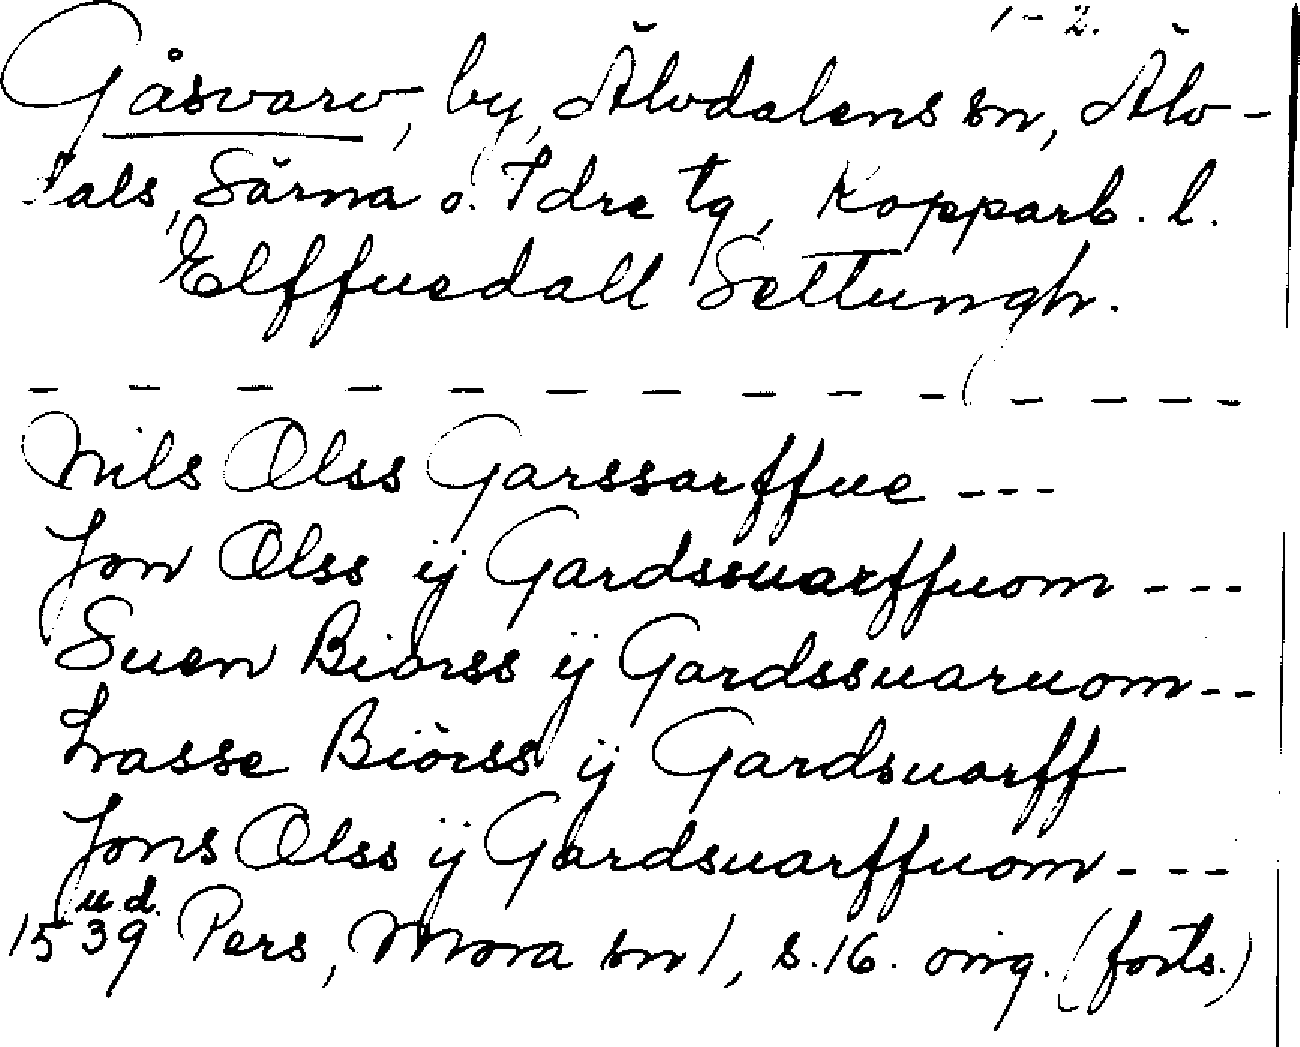 1-2.
Gåsvarv, by, Älvdalens sn, Älv-
dals, Särna o. Idre tg, Kopparb. l.
Elffuedall Settungh.
- - - - - - - - - - - - -
Nils Olss Garssarffue ---
Jon Olss ÿ Gardssuarffuom ---
Suen Biörss ÿ Gardssuaruom --
Lasse Biörss ÿ Gardsuarff
Jons Olss ÿ Gardsuarffuom ---
ud.
1539 Pers, Mora sn 1, s. 16. orig. (forts.)